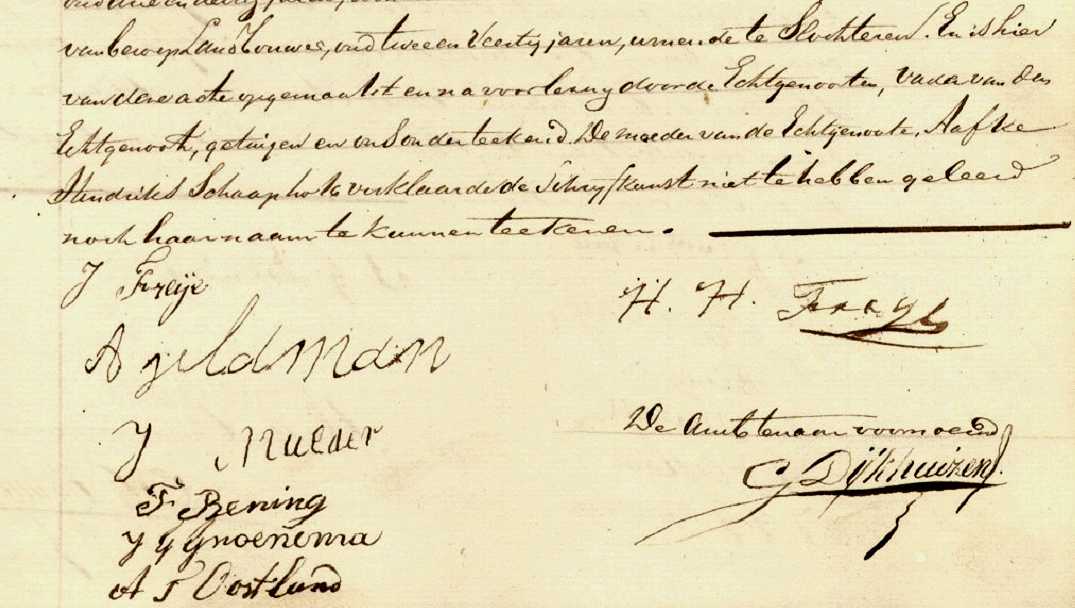 van beroep Landbouwer, oud twee en Veertig jaren, wonende te Slochteren. En is hier
van deze acte opgemaakt en na voorlezing door de Echtgenooten, Vader van den
Echtgenoot, getuigen en ons onderteekend. De moeder van de Echtgenoote, Aafke
Hindriks Schaaphok verklaarde de Schryfkunst niet te hebben geleerd
noch haar naam te kunnen teekenen.
J Freije
H. H. Freye
A geldman
J Mulder
De Ambtenaar voornoemd
G Dijkhuizen
F Bening
J G Groenema
A F Oostland